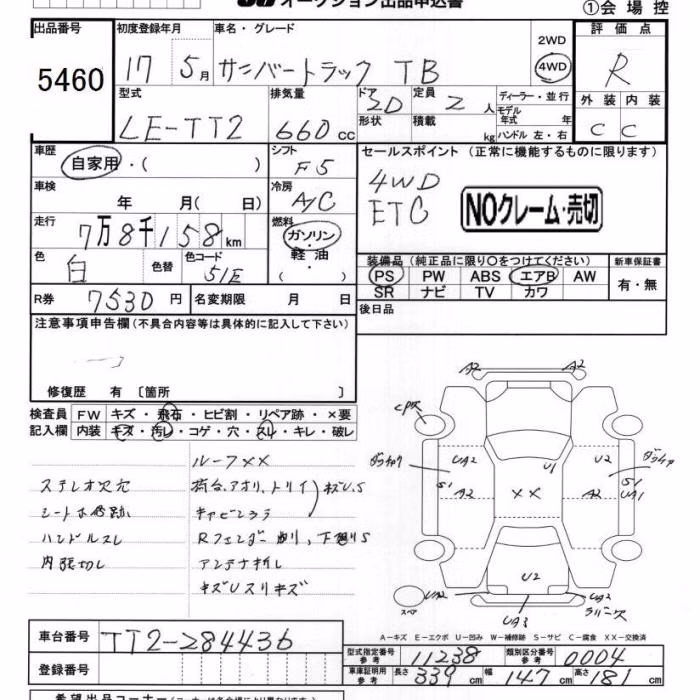 オークション出品申込書
①会場控
出品番号 初度登録年月 車名・グレード 評価点
5460 17 5月 サンバートラック TB 2WD 4WD R
型式 排気量 ドア 定員 ディーラー・並行 外装 内装
LE-TT2 660cc 2D 2人 モデル年式 年 C C
形状 積載 kg ハンドル 左・右
車歴 シフト セールスポイント(正常に機能するものに限ります)
自家用・( ) F5 4WD
車検 冷房 ETC NOクレーム・売切
年 月( 日) A/C
走行 燃料
7万8千158km ガソリン・軽油・( )
色 色替 色コード 装備品(純正品に限り○をつけてください) 新車保証書
白 51E PS PW ABS エアB AW 有・無
SR ナビ TV カワ
R券 7530円 名変期限 月 日 後日品
注意事項申告欄(不具合内容等は具体的に記入して下さい)
修復歴 有〔箇所 〕
検査員 FW キズ・飛石・ヒビ割・リペア跡・×要
記入欄 内装 キズ・汚レ・コゲ・穴・スレ・キレ・破レ
ルーフXX
ステレオ欠穴 荷台、アオリ、トリイ キズU.S
ハンドルスレ
内張切レ アンテナ折レ
キズUスリキズ
A2 A2
UA2 U1 U2
S1 A2 XX A2 S1 UA1
U2
UA2 UA3 U2
スペア
A-キズ E-エクボ U-凹み W-補修跡 S-サビ C-腐食 XX-交換済
車台番号 TT2-284436
登録番号
型式指定番号 参考 11238 類別区分番号 参考 0004
車庫証明用 参考 長さ 339cm 幅 147cm 高さ 181cm
希望出品コーナー